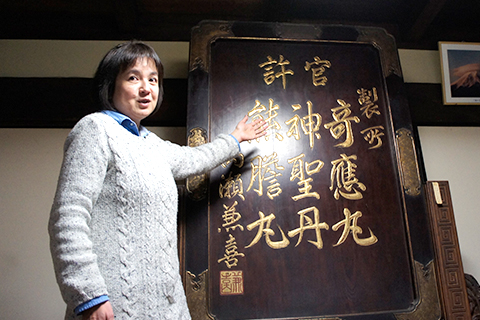 官許
製所
奇應丸
神聖丹
熊膽丸
瀬兼喜